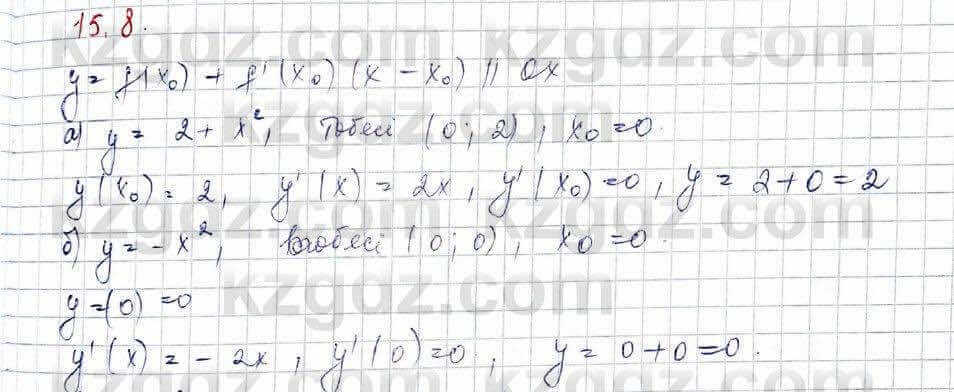 15.8.
y = f(x₀) + f'(x₀)(x - x₀) || Ox
а) y = 2 + x², төбесі (0; 2), x₀ = 0.
y(x₀) = 2, y'(x) = 2x, y'(x₀) = 0, y = 2 + 0 = 2
б) y = -x², төбесі (0; 0), x₀ = 0.
y = (0) = 0
y'(x) = - 2x, y'(0) = 0, y = 0 + 0 = 0.
kzgdz.com kzgdz.com
kzgdz.com kzgdz.com
kzgdz.com kzgdz.com
kzgdz.com kzgdz.com